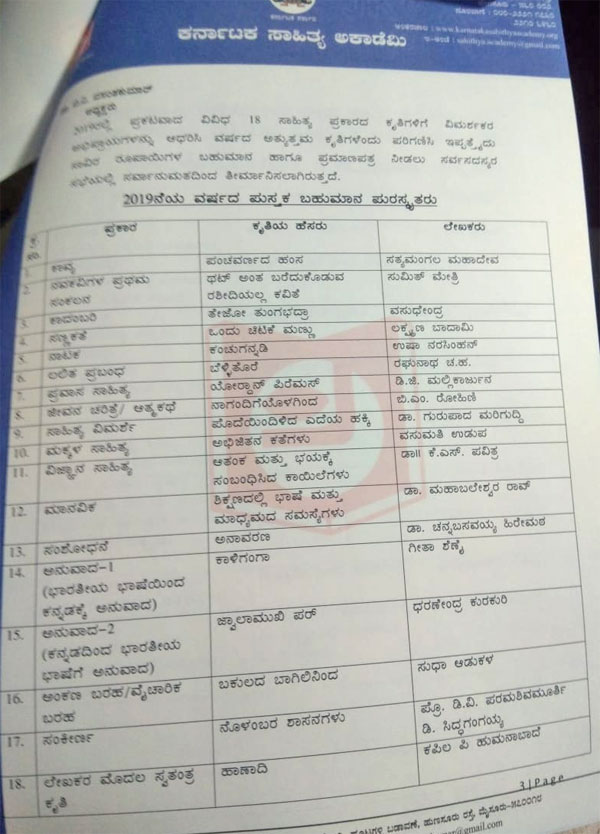 ದೂರವಾಣಿ : ೦೮೦-೨೨೨೧೧೭೩೦
ಕರ್ನಾಟಕ ಸಾಹಿತ್ಯ ಅಕಾಡೆಮಿ
: www.karnatakasahithyaacademy.org
ಇ-ಅಂಚೆ : sahithya.academy@gmail.com
ಅಧ್ಯಕ್ಷರು
2019ರಲ್ಲಿ ಪ್ರಕಟವಾದ ವಿವಿಧ 18 ಸಾಹಿತ್ಯ ಪ್ರಕಾರದ ಕೃತಿಗಳಿಗೆ ವಿಮರ್ಶಕರ
ಅಭಿಪ್ರಾಯಗಳನ್ನು ಆಧರಿಸಿ ವರ್ಷದ ಅತ್ಯುತ್ತಮ ಕೃತಿಗಳೆಂದು ಪರಿಗಣಿಸಿ ಇಪ್ಪತ್ತೈದು
ಸಾವಿರ ರೂಪಾಯಿಗಳ ಬಹುಮಾನ ಹಾಗೂ ಪ್ರಮಾಣಪತ್ರ ನೀಡಲು ಸರ್ವಸದಸ್ಯರ
ಸಭೆಯಲ್ಲಿ ಸರ್ವಾನುಮತದಿಂದ ತೀರ್ಮಾನಿಸಲಾಗಿರುತ್ತದೆ.
2019ನೆಯ ವರ್ಷದ ಪುಸ್ತಕ ಬಹುಮಾನ ಪುರಸ್ಕೃತರು
ಕ್ರ. ಸಂ. ಪ್ರಕಾರ ಕೃತಿಯ ಹೆಸರು ಲೇಖಕರು
1. ಕಾವ್ಯ ಪಂಚವರ್ಣದ ಹಂಸ ಸತ್ಯಮಂಗಲ ಮಹಾದೇವ
2. ನವಕವಿಗಳ ಪ್ರಥಮ ಥಟ್ ಅಂತ ಬರೆದುಕೊಡುವ ಸುಮಿತ್ ಮೇತ್ರಿ
ಸಂಕಲನ ರಶೀದಿಯಲ್ಲ ಕವಿತೆ
3. ಕಾದಂಬರಿ ತೇಜೋ ತುಂಗಭದ್ರಾ ವಸುಧೇಂದ್ರ
4. ಸಣ್ಣಕತೆ ಒಂದು ಚಿಟಿಕೆ ಮಣ್ಣು ಲಕ್ಷ್ಮಣ ಬಾದಾಮಿ
5. ನಾಟಕ ಕಂಚುಗನ್ನಡಿ ಉಷಾ ನರಸಿಂಹನ್
6. ಲಲಿತ ಪ್ರಬಂಧ ಬೆಳ್ಳಿತೊರೆ ರಘುನಾಥ ಚ.ಹ.
7. ಪ್ರವಾಸ ಸಾಹಿತ್ಯ ಯೋರ್‍ದಾನ್ ಪಿರೆಮಸ್ ಡಿ.ಜಿ. ಮಲ್ಲಿಕಾರ್ಜುನ
8. ಜೀವನ ಚರಿತ್ರೆ/ ಆತ್ಮಕಥೆ ನಾಗಂದಿಗೆಯೊಳಗಿಂದ ಬಿ.ಎಂ. ರೋಹಿಣಿ
9. ಸಾಹಿತ್ಯ ವಿಮರ್ಶೆ ಪೊದೆಯಿಂದಿಳಿದ ಎದೆಯ ಹಕ್ಕಿ ಡಾ. ಗುರುಪಾದ ಮರಿಗುದ್ದಿ
10. ಮಕ್ಕಳ ಸಾಹಿತ್ಯ ಅಭಿಜಿತನ ಕತೆಗಳು ವಸುಮತಿ ಉಡುಪ
11. ವಿಜ್ಞಾನ ಸಾಹಿತ್ಯ ಆತಂಕ ಮತ್ತು ಭಯಕ್ಕೆ ಡಾ|| ಕೆ.ಎಸ್. ಪವಿತ್ರ
ಸಂಬಂಧಿಸಿದ ಕಾಯಿಲೆಗಳು
12. ಮಾನವಿಕ ಶಿಕ್ಷಣದಲ್ಲಿ ಭಾಷೆ ಮತ್ತು ಡಾ. ಮಹಾಬಲೇಶ್ವರ ರಾವ್
ಮಾಧ್ಯಮದ ಸಮಸ್ಯೆಗಳು
13. ಸಂಶೋಧನೆ ಅನಾವರಣ ಡಾ. ಚನ್ನಬಸವಯ್ಯ ಹಿರೇಮಠ
14. ಅನುವಾದ-1 ಕಾಳಿಗಂಗಾ ಗೀತಾ ಶೆಣೈ
(ಭಾರತೀಯ ಭಾಷೆಯಿಂದ
ಕನ್ನಡಕ್ಕೆ ಅನುವಾದ)
15. ಅನುವಾದ-2 ಜ್ವಾಲಾಮುಖಿ ಪರ್ ಧರಣೇಂದ್ರ ಕುರಕುರಿ
(ಕನ್ನಡದಿಂದ ಭಾರತೀಯ
ಭಾಷೆಗೆ ಅನುವಾದ)
16. ಅಂಕಣ ಬರಹ/ವೈಚಾರಿಕ ಬಕುಲದ ಬಾಗಿಲಿನಿಂದ ಸುಧಾ ಆಡುಕಳ
ಬರಹ
17. ಸಂಕೀರ್ಣ ನೊಳಂಬರ ಶಾಸನಗಳು ಪ್ರೊ. ಡಿ.ವಿ. ಪರಮಶಿವಮೂರ್ತಿ
ಡಿ. ಸಿದ್ಧಗಂಗಯ್ಯ
18. ಲೇಖಕರ ಮೊದಲ ಸ್ವತಂತ್ರ ಹಾಣಾದಿ ಕಪಿಲ ಪಿ ಹುಮನಾಬಾದೆ
ಕೃತಿ
3 | Page
ಬಡಾವಣೆ, ಹುಣಸೂರು ರಸ್ತೆ, ಮೈಸೂರು-೫೭೦೦೧೮
@gmail.com